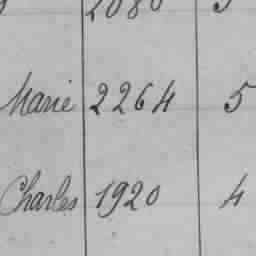 2080
Marie 2264 5
Charles 1920 4